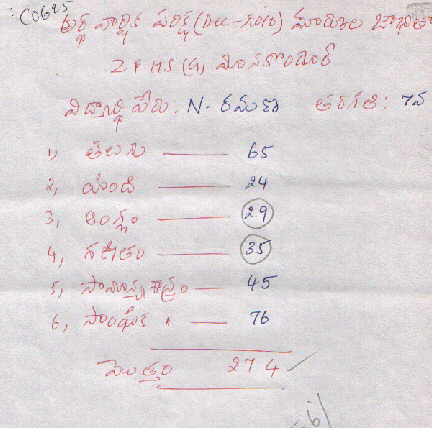 C0625
అర్థ వార్షిక పరీక్ష (Dec-2010) మార్కుల జాబితా
Z P H S (G)
విద్యార్థి పేరు. N. రమకా తరగతి: 7వ
1, తెలుగు —— 65
2, హింది —— 24
3, ఆంగ్లం —— 29
4, గణితం —— 35
5, సామాన్య శాస్త్రం — 45
6, సాంఘిక " —— 76
మొత్తం 274